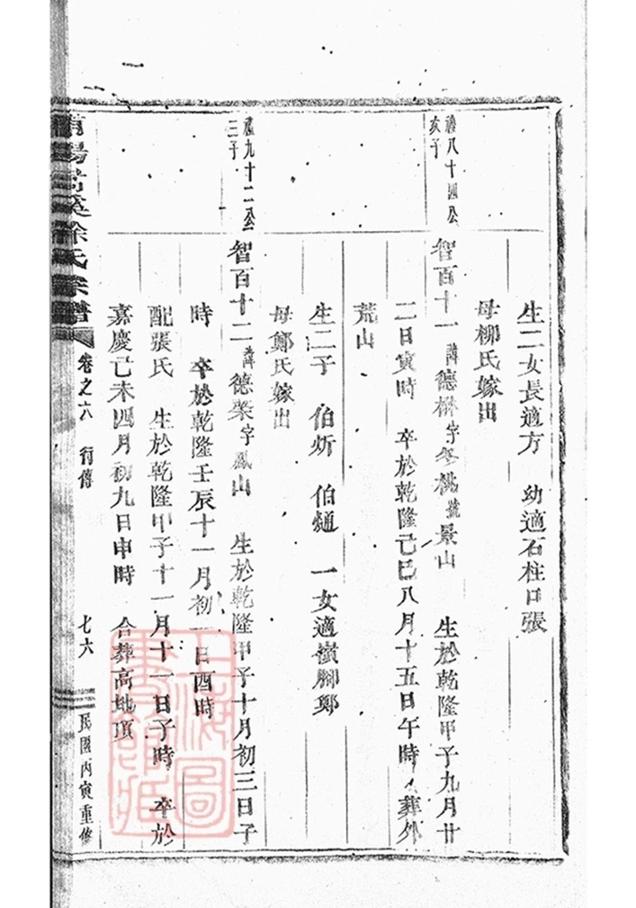 生二女長適方 幼適石柱口張
母柳氏嫁出
禮八十四公
亥子
智百十一諱德林字冬桃號景山 生於乾隆甲子九月廿
二日寅時 卒於乾隆己巳八月十五日午時 葬外
荒山
生二子 伯炘 伯 一女適嶺腳鄭
母鄭氏嫁出
禮九十二公
三子
智百十二諱德榮字鳳山 生於乾隆甲子十月初三日子
時 卒於乾隆壬辰十一月初一日酉時
配張氏 生於乾隆甲子十一月十一日子時 卒於
嘉慶己未四月初九日申時 合葬高地頂
南陽 溪徐氏宗譜 卷之六 行傳 七六 民國丙寅重修
上海圖書館藏